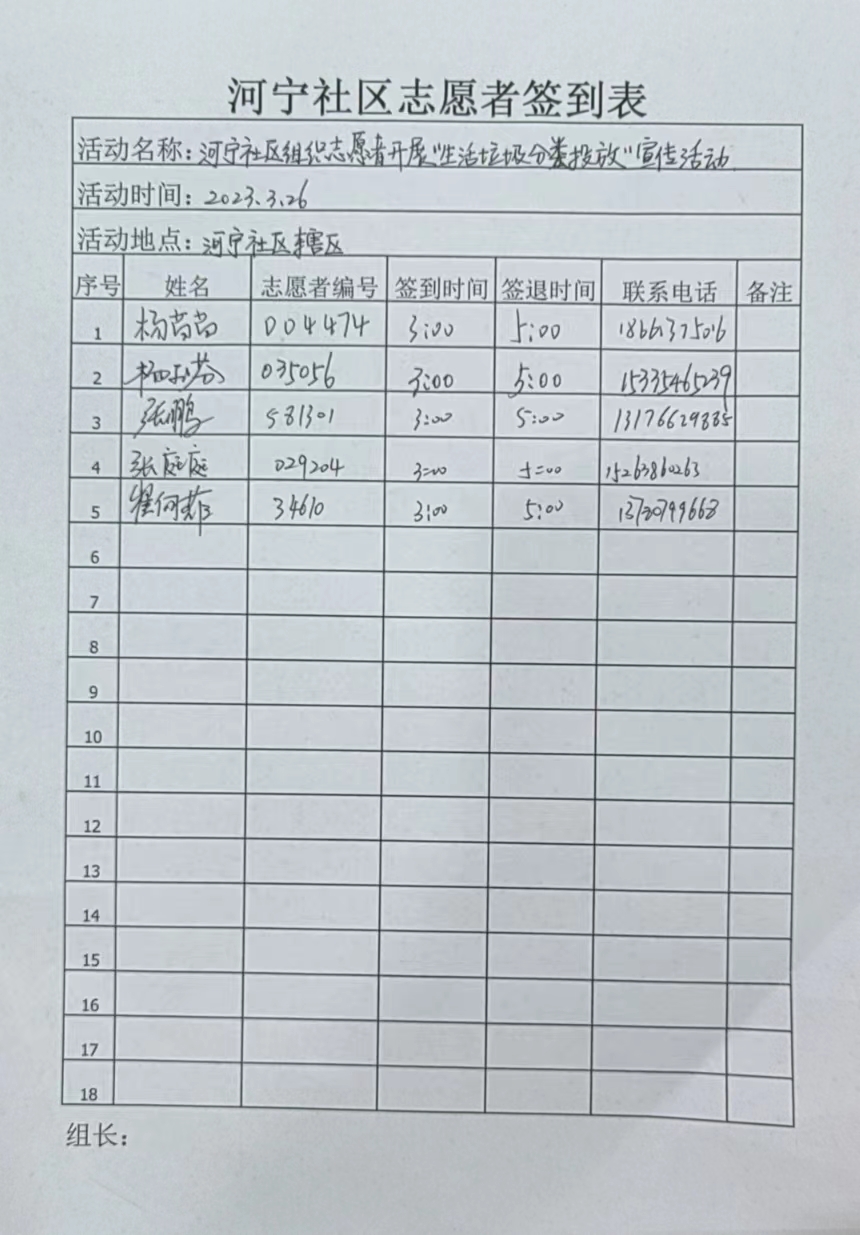 河宁社区志愿者签到表
活动名称：河宁社区组织志愿者开展“生活垃圾分类投放”宣传活动
活动时间：2023.3.26
活动地点：河宁社区辖区
序号 姓名 志愿者编号 签到时间 签退时间 联系电话 备注
1 杨苗苗 004474 3:00 5:00
2 035056 3:00 5:00 15335465239
3 张鹏 581301 3:00 5:00 13176629885
4 张庭庭 029204 3:00 5:00 15263860263
5 34610 3:00 5:00
6
7
8
9
10
11
12
13
14
15
16
17
18
组长：